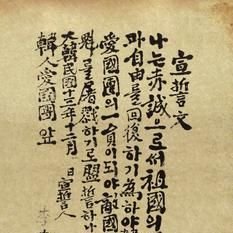 宣誓文
나는赤誠으로써祖國의
과自由를回復하기爲하야韓
愛國團의一員이되야敵國
魁를屠戮하기로盟誓하나
大韓民國十三年十二月
日宣誓人
韓人愛國團앞
李